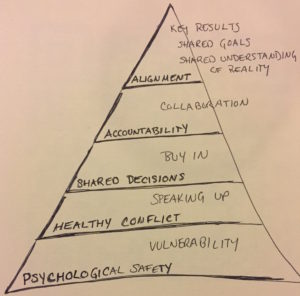 KEY RESULTS
SHARED GOALS
SHARED UNDERSTANDING
OF REALITY
ALIGNMENT
COLLABORATION
ACCOUNTABILITY
BUY IN
SHARED DECISIONS
SPEAKING UP
HEALTHY CONFLICT
VULNERABILITY
PSYCHOLOGICAL SAFETY